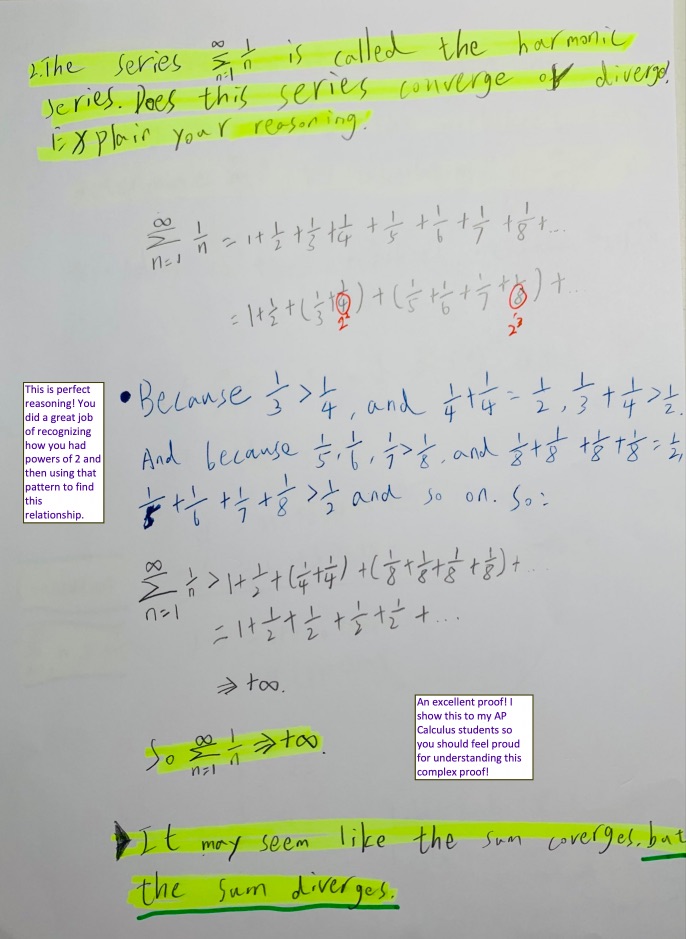 2. The series ∞ Σ n=1 1/n is called the harmonic
series. Does this series converge or diverge?
Explain your reasoning.
∞ Σ n=1 1/n = 1+1/2+1/3+1/4+1/5+1/6+1/7+1/8+...
= 1+1/2+(1/3+1/4)+(1/5+1/6+1/7+1/8)+...
2² 2³
This is perfect
reasoning! You
did a great job
of recognizing
how you had
powers of 2 and
then using that
pattern to find
this
relationship.
• Because 1/3 > 1/4, and 1/4+1/4 = 1/2, 1/3+1/4 > 1/2.
And because 1/5, 1/6, 1/7 > 1/8, and 1/8+1/8+1/8+1/8 = 1/2,
1/5+1/6+1/7+1/8 > 1/2 and so on. So:
∞ Σ n=1 1/n > 1+1/2+(1/4+1/4)+(1/8+1/8+1/8+1/8)+...
= 1+1/2+1/2+1/2+1/2+...
⇒ +∞.
An excellent proof! I
show this to my AP
Calculus students so
you should feel proud
for understanding this
complex proof!
So ∞ Σ n=1 1/n ⇒ +∞.
It may seem like the sum coverges, but
the sum diverges.